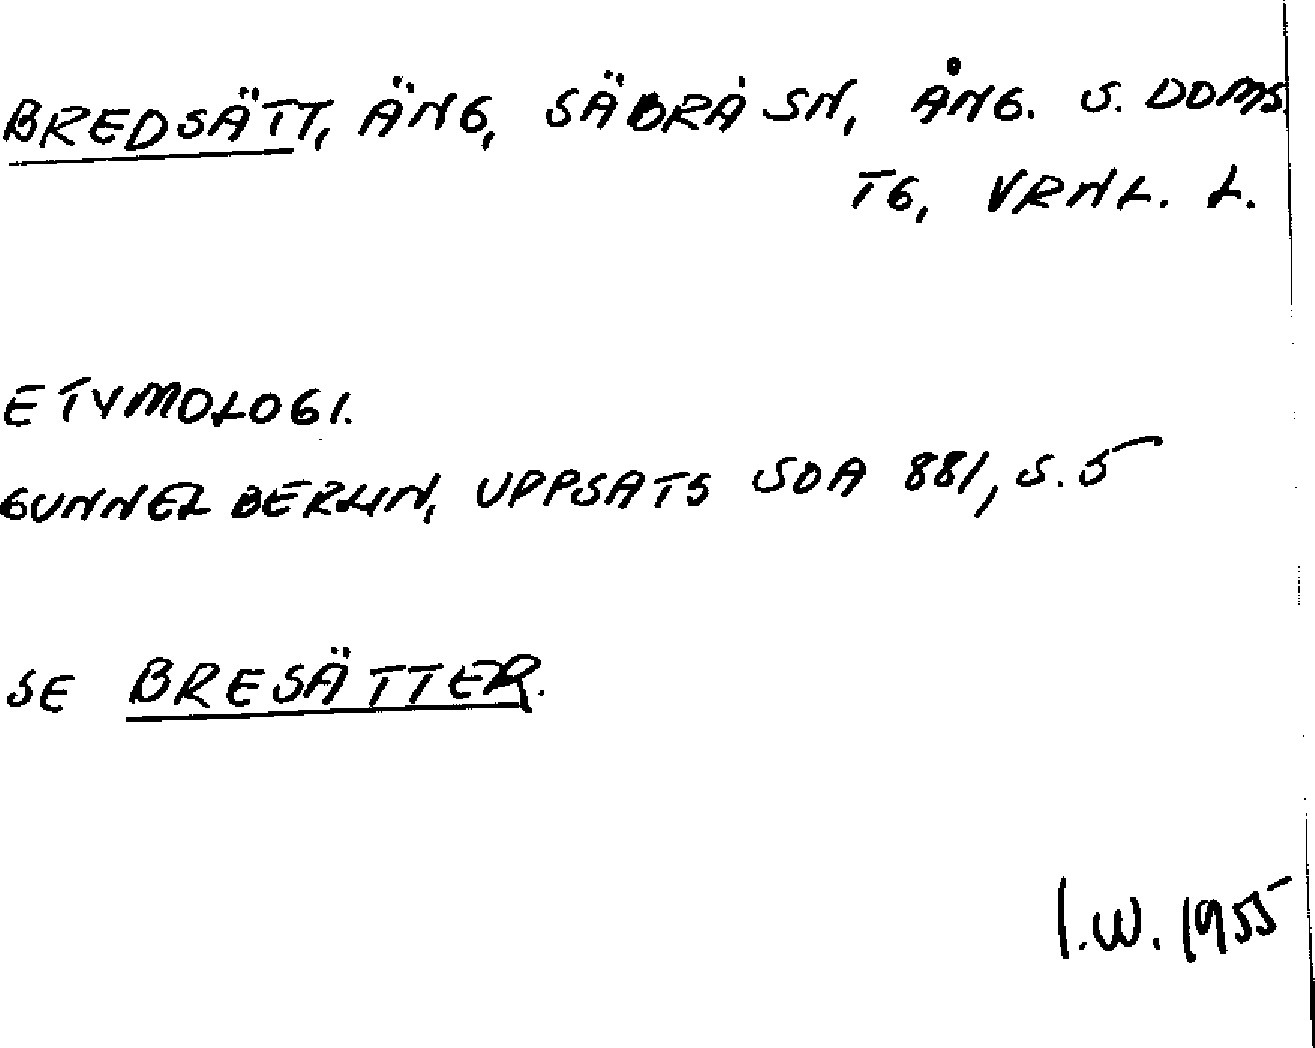 BREDSÄTT, ÄNG, SÄBRÅ SN, ÅNG. S. DOMS.
TG, VRNL. L.
ETYMOLOGI.
GUNNEL BERLIN, UPPSATS SOA 881, S. 5
SE BRESÄTTER.
I.W. 1955